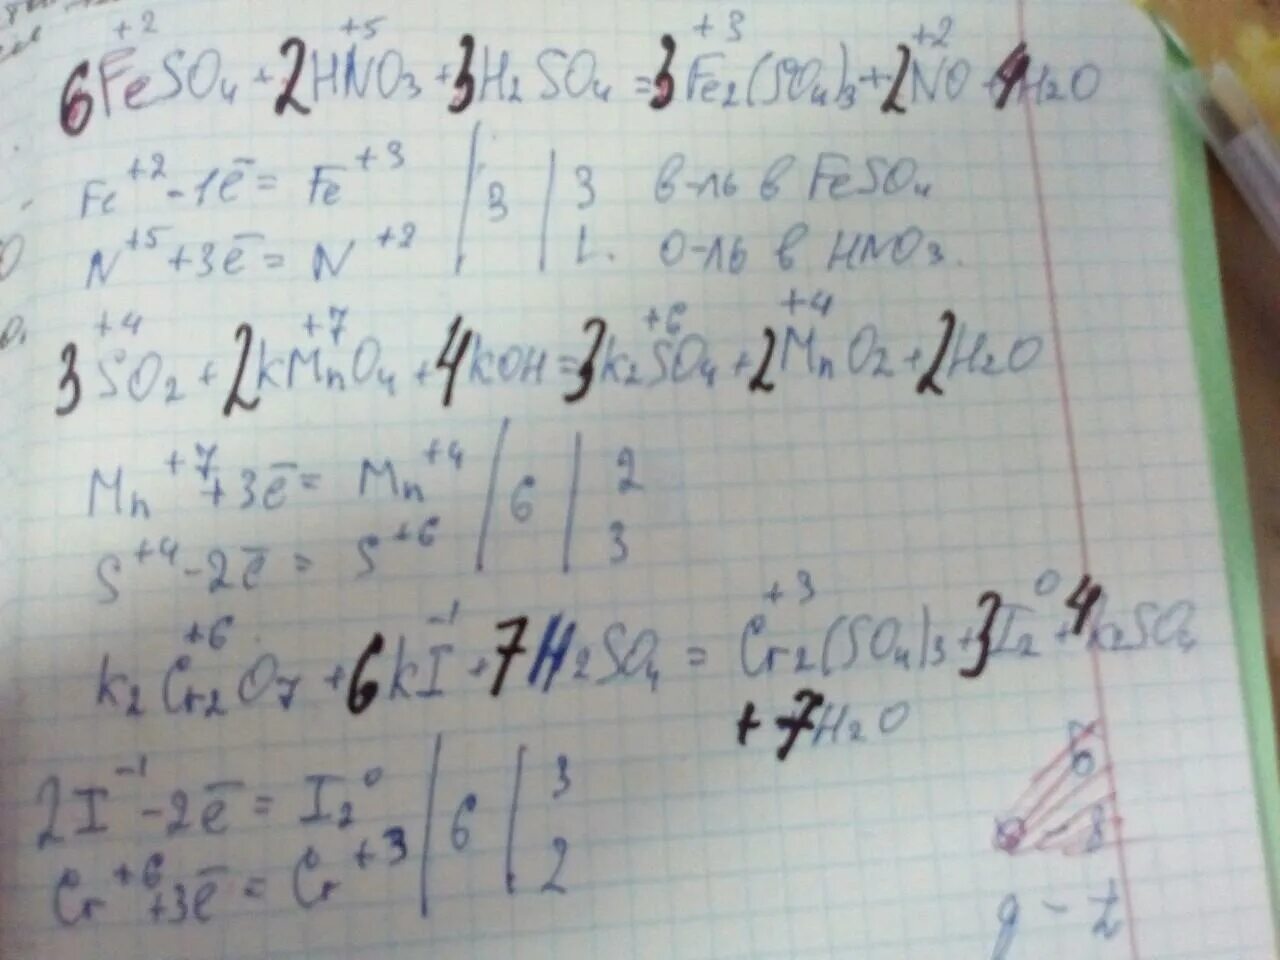 +2 +5 +3 +2
6FeSO4 + 2HNO3 + 3H2SO4 = 3Fe2(SO4)3 + 2NO + 4H2O
Fe+2 - 1ē = Fe+3 | 3 | 3 в-ль в FeSO4
N+5 + 3ē = N+2 | | 1. о-ль в HNO3.
+4 +7 +6 +4
3SO2 + 2KMnO4 + 4KOH = 3K2SO4 + 2MnO2 + 2H2O
Mn+7 + 3ē = Mn+4 | 6 | 2
S+4 - 2ē = S+6 | | 3
+6 -1 +3 0
K2Cr2O7 + 6KI + 7H2SO4 = Cr2(SO4)3 + 3I2 + 4K2SO4
+ 7H2O
2I-1 - 2ē = I2 0 | 6 | 3
Cr+6 + 3ē = Cr+3 | | 2